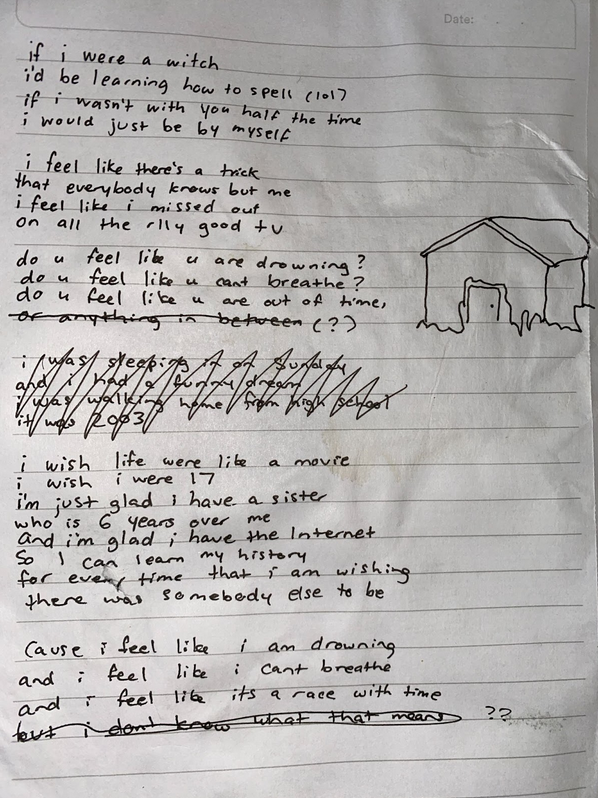 Date:
if i were a witch
i'd be learning how to spell (lol)
if i wasn't with you half the time
i would just be by myself
i feel like there's a trick
that everybody knows but me
i feel like i missed out
on all the rlly good tv
do u feel like u are drowning?
do u feel like u cant breathe?
do u feel like u are out of time,
or anything in between (??)
i was sleeping in on Sunday
and i had a funny dream
i was walking home from high school
it was 2003
i wish life were like a movie
i wish i were 17
i'm just glad i have a sister
who is 6 years over me
and i'm glad i have the Internet
So I can learn my history
for every time that i am wishing
there was somebody else to be
Cause i feel like i am drowning
and i feel like i cant breathe
and i feel like its a race with time
but i don't know what that means ??